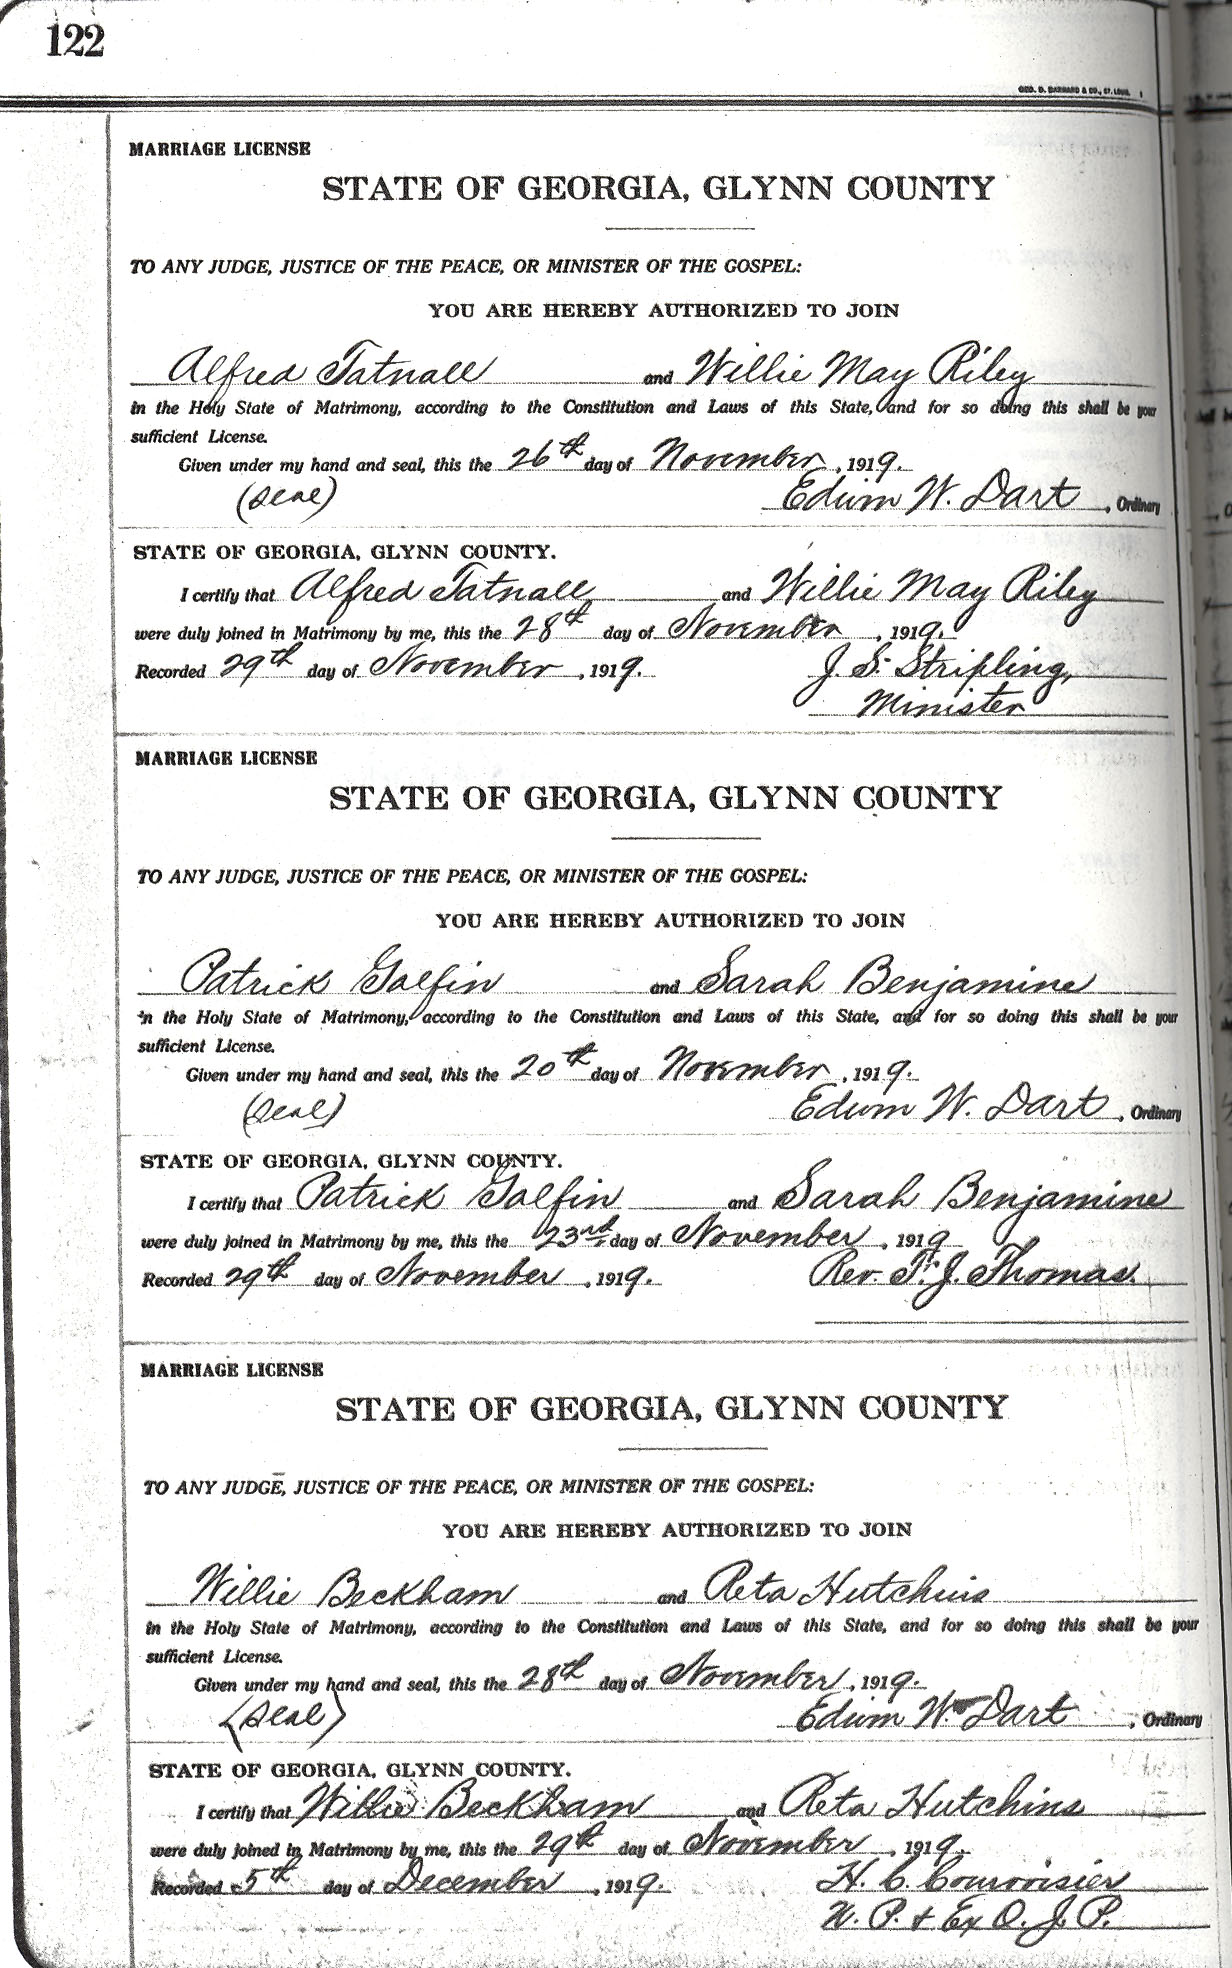 122
GEO. D. BARNARD & CO., ST. LOUIS.
MARRIAGE LICENSE
STATE OF GEORGIA, GLYNN COUNTY
TO ANY JUDGE, JUSTICE OF THE PEACE, OR MINISTER OF THE GOSPEL:
YOU ARE HEREBY AUTHORIZED TO JOIN
Alfred Tatnall and Willie May Riley
in the Holy State of Matrimony, according to the Constitution and Laws of this State, and for so doing this shall be your
sufficient License.
Given under my hand and seal, this the 26th day of November, 1919.
(Seal) Edwin W. Dart, Ordinary
STATE OF GEORGIA, GLYNN COUNTY.
I certify that Alfred Tatnall and Willie May Riley
were duly joined in Matrimony by me, this the 28th day of November, 1919.
Recorded 29th day of November, 1919. J. S. Stripling,
Minister
MARRIAGE LICENSE
STATE OF GEORGIA, GLYNN COUNTY
TO ANY JUDGE, JUSTICE OF THE PEACE, OR MINISTER OF THE GOSPEL:
YOU ARE HEREBY AUTHORIZED TO JOIN
Patrick Golfin and Sarah Benjamine
in the Holy State of Matrimony, according to the Constitution and Laws of this State, and for so doing this shall be your
sufficient License.
Given under my hand and seal, this the 20th day of November, 1919.
(Seal) Edwin W. Dart, Ordinary
STATE OF GEORGIA, GLYNN COUNTY.
I certify that Patrick Golfin and Sarah Benjamine
were duly joined in Matrimony by me, this the 23rd day of November, 1919
Recorded 29th day of November, 1919. Rev. F. J. Thomas.
MARRIAGE LICENSE
STATE OF GEORGIA, GLYNN COUNTY
TO ANY JUDGE, JUSTICE OF THE PEACE, OR MINISTER OF THE GOSPEL:
YOU ARE HEREBY AUTHORIZED TO JOIN
Willie Beckham and Reta Hutchins
in the Holy State of Matrimony, according to the Constitution and Laws of this State, and for so doing this shall be your
sufficient License.
Given under my hand and seal, this the 28th day of November, 1919.
(Seal) Edwin W. Dart, Ordinary
STATE OF GEORGIA, GLYNN COUNTY.
I certify that Willie Beckham and Reta Hutchins
were duly joined in Matrimony by me, this the 29th day of November, 1919.
Recorded 5th day of December, 1919. H. C. Courvoisier
N. P. & Ex O. J. P.